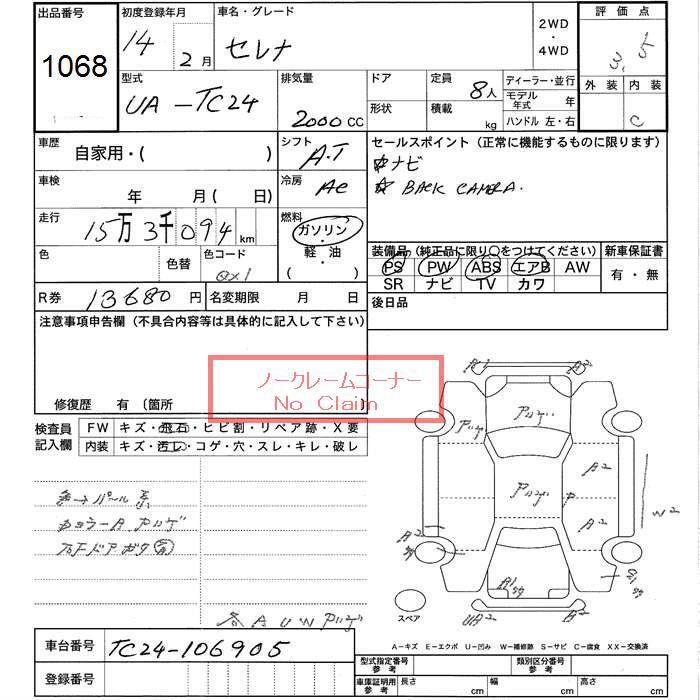 出品番号 初度登録年月 車名・グレード 評価点
1068 14 2月 セレナ 2WD・4WD 3.5
型式 排気量 ドア 定員 8人 ディーラー・並行 外装 内装
UA-TC24 2000cc 形状 積載 kg モデル年式 年 C
ハンドル 左・右
車歴 自家用・( ) シフト A.T セールスポイント (正常に機能するものに限ります)
ナビ
車検 年 月 ( 日) 冷房 AC BACK CAMERA.
走行 15万3千094km 燃料 ガソリン・軽油・( )
色 色替 色コード 装備品 (純正品に限り○をつけてください) 新車保証書
PS PW ABS エアB AW 有・無
SR ナビ TV カワ
R券 13680円 名変期限 月 日 後日品
注意事項申告欄 (不具合内容等は具体的に記入して下さい)
ノークレームコーナー
No Claim
修復歴 有 (箇所
検査員記入欄 FW キズ・飛石・ヒビ割・リペア跡・X要
内装 キズ・汚レ・コゲ・穴・スレ・キレ・破レ
A2
W2
UA2
スペア
A-キズ E-エクボ U-凹み W-補修跡 S-サビ C-腐食 XX-交換済
車台番号 TC24-106905
登録番号
型式指定番号 参考 類別区分番号 参考
車庫証明用 参考 長さ cm 幅 cm 高さ cm